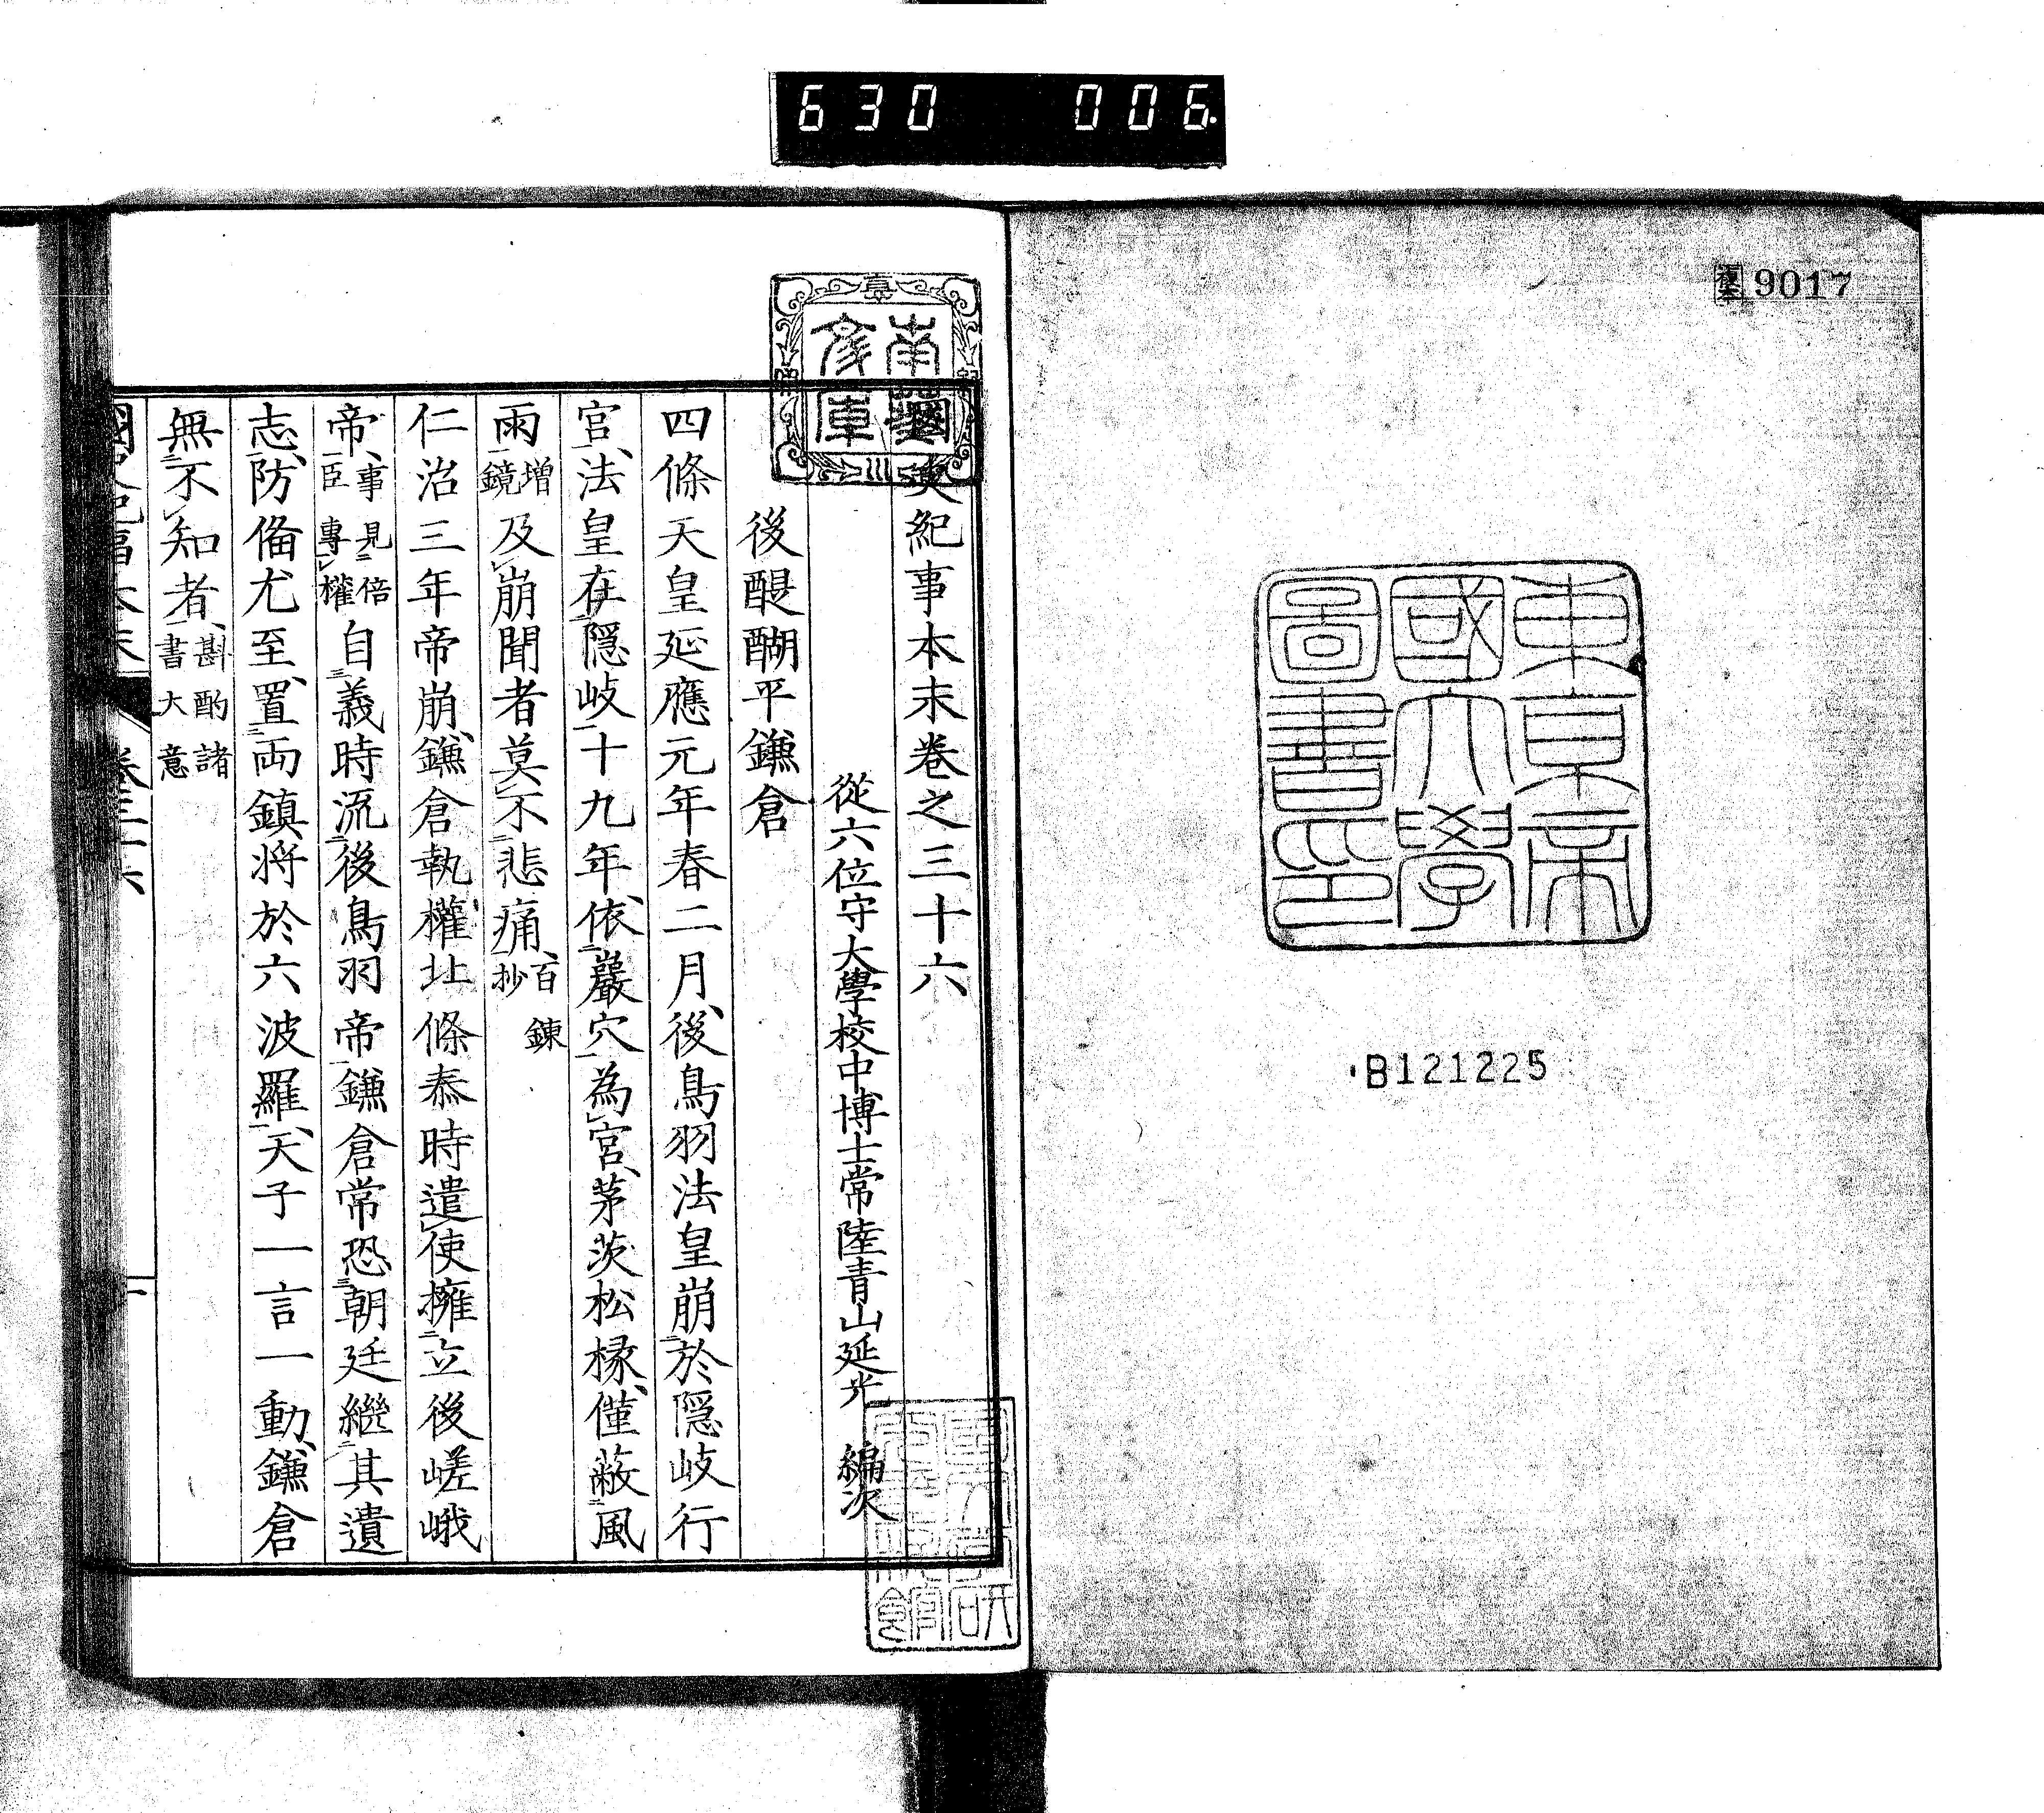 630 006
複本 9017
東京帝
國大學
圖書印
B121225
南葵
文庫
國史紀事本末卷之三十六
從六位守大學校中博士常陸青山延光 編次
後醍醐平鎌倉
四條天皇延應元年春二月、後鳥羽法皇崩於隱岐行
宮、法皇在隱岐十九年、依巖穴為宮、茅茨松椽、僅蔽風
雨增鏡及崩聞者莫不悲痛、百鍊抄
仁治三年帝崩、鎌倉執權北條泰時遣使擁立後嵯峨
帝、事見倍臣專權自義時流後鳥羽帝鎌倉常恐朝廷繼其遺
志、防備尤至、置両鎮将於六波羅、天子一言一動、鎌倉
無不知者、斟酌諸書大意
國史紀事本末 卷三十六 一